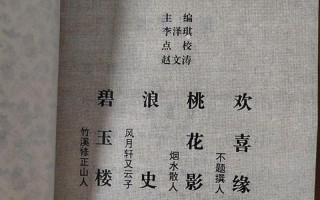 主编
李泽琪
点校
赵文涛
欢喜缘
不题撰人
桃花影
烟水散人
浪史
风月轩又玄子
碧玉楼
竹溪修正山人